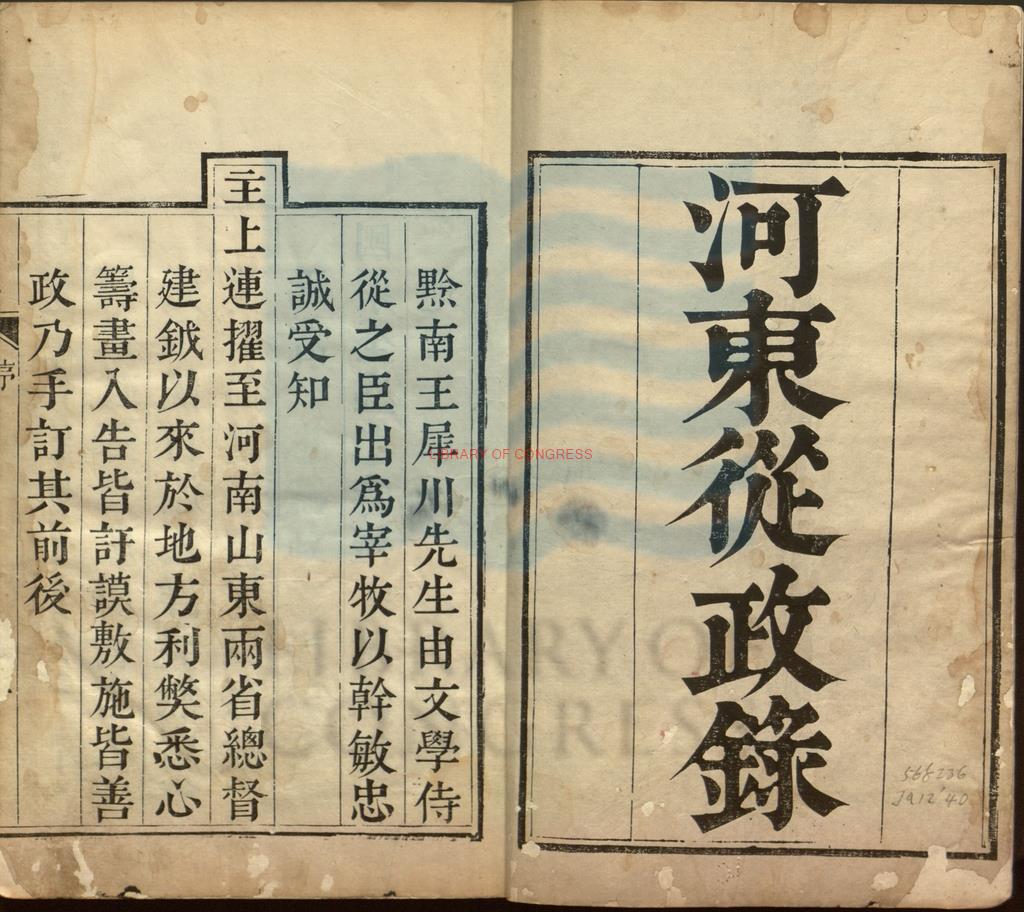 河東從政錄
黔南王犀川先生由文學侍
從之臣出爲宰牧以幹敏忠
誠受知
主上連擢至河南山東兩省總督
建鉞以來於地方利獘悉心
籌畫入告皆訏謨敷施皆善
政乃手訂其前後
序
LIBRARY OF CONGRESS
568236
Ja12'40